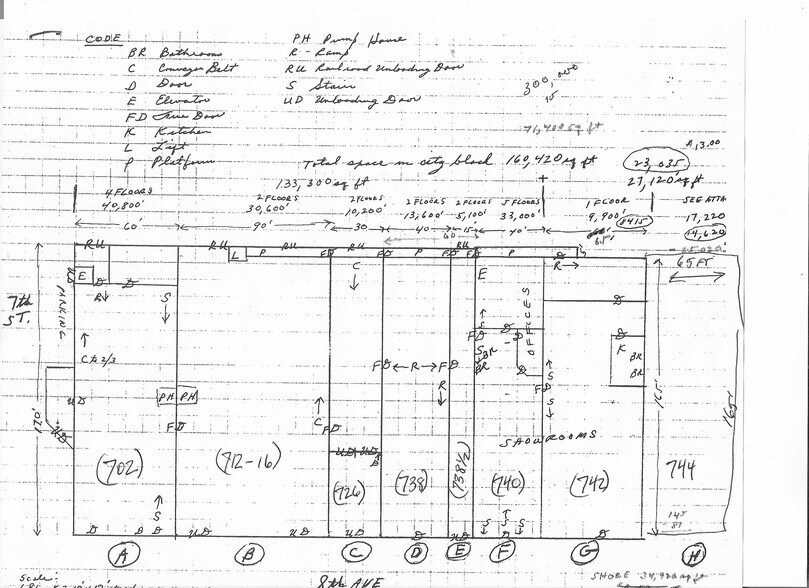 CODE
BR Bathroom
C Conveyor Belt
D Door
E Elevator
FD Fire Door
K Kitchen
L Lift
P Platform
PH Pump House
R - Ramp
RU Railroad Unloading Door
S Stairs
UD Unloading Door
300,000
15
71,400 sq ft
Total space in city block 160,420 sq ft
133,300 sq ft
+
23,035
27,120 sq ft
4 FLOORS
40,800'
60'
2 FLOORS
30,600'
90'
2 FLOORS
10,200'
30
2 FLOORS
13,600'
40
2 FLOORS
5,100'
15
60
5 FLOORS
33,000'
40'
1 FLOOR
9,900'
8415
65'
17,220
14,620
65 FT
RU
RU
RU
RU
RU
L
P
FD
FD
P
FD
FD
P
D
R
E
D
D
R
S
C
E
7th
ST.
PARKING
C to 2/3
UD
UD
170'
PH
PH
FD
C
FD
UD
UD
FD
R
FD
R
S
FD
S
BR
BR
D
D
D
OFFICES
FD
S
S
D
D
K
BR
BR
SHOWROOMS
165'
165'
(702)
(712-16)
(726)
(738)
(738 1/2)
(740)
(742)
744
145
S
D
D
D
UD
UD
UD
D
UD
S
S
S
D
D
A
B
C
D
E
F
G
H
Scale:
8th AVE